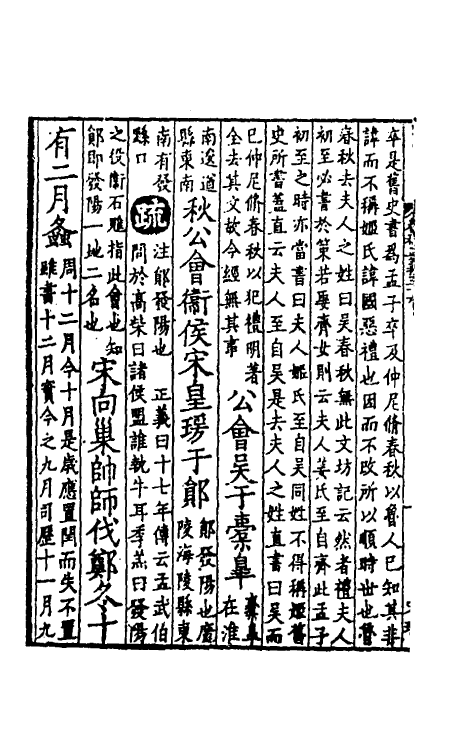 卒是舊史書爲孟子卒及仲尼脩春秋以魯人已知其非
諱而不稱姬氏諱國惡禮也因而不改所以順時世也魯
春秋去夫人之姓曰吳春秋無此文坊記云然者禮夫人
初至必書於策若娶齊女則云夫人姜氏至自齊此孟子
初至之時亦當書曰夫人姬氏至自吳同姓不得稱姬舊
史所書蓋直云夫人至自吳是去夫人之姓直書曰吳而
已仲尼脩春秋以犯禮明著
全去其文故今經無其事
公會吳于橐皋
橐皋
在淮
南逡遒
縣東南
秋公會衞侯宋皇瑗于鄖
鄖發陽也廣
陵海陵縣東
南有發
繇口
疏
注鄖發陽也 正義曰十七年傳云孟武伯
問於高柴曰諸侯盟誰執牛耳季羔曰發陽
之役衞石魋指此會也知
鄖即發陽一地二名也
宋向巢帥師伐鄭冬十
有二月螽
周十二月今十月是歲應置閏而失不置
雖書十二月實今之九月司歷十一月九